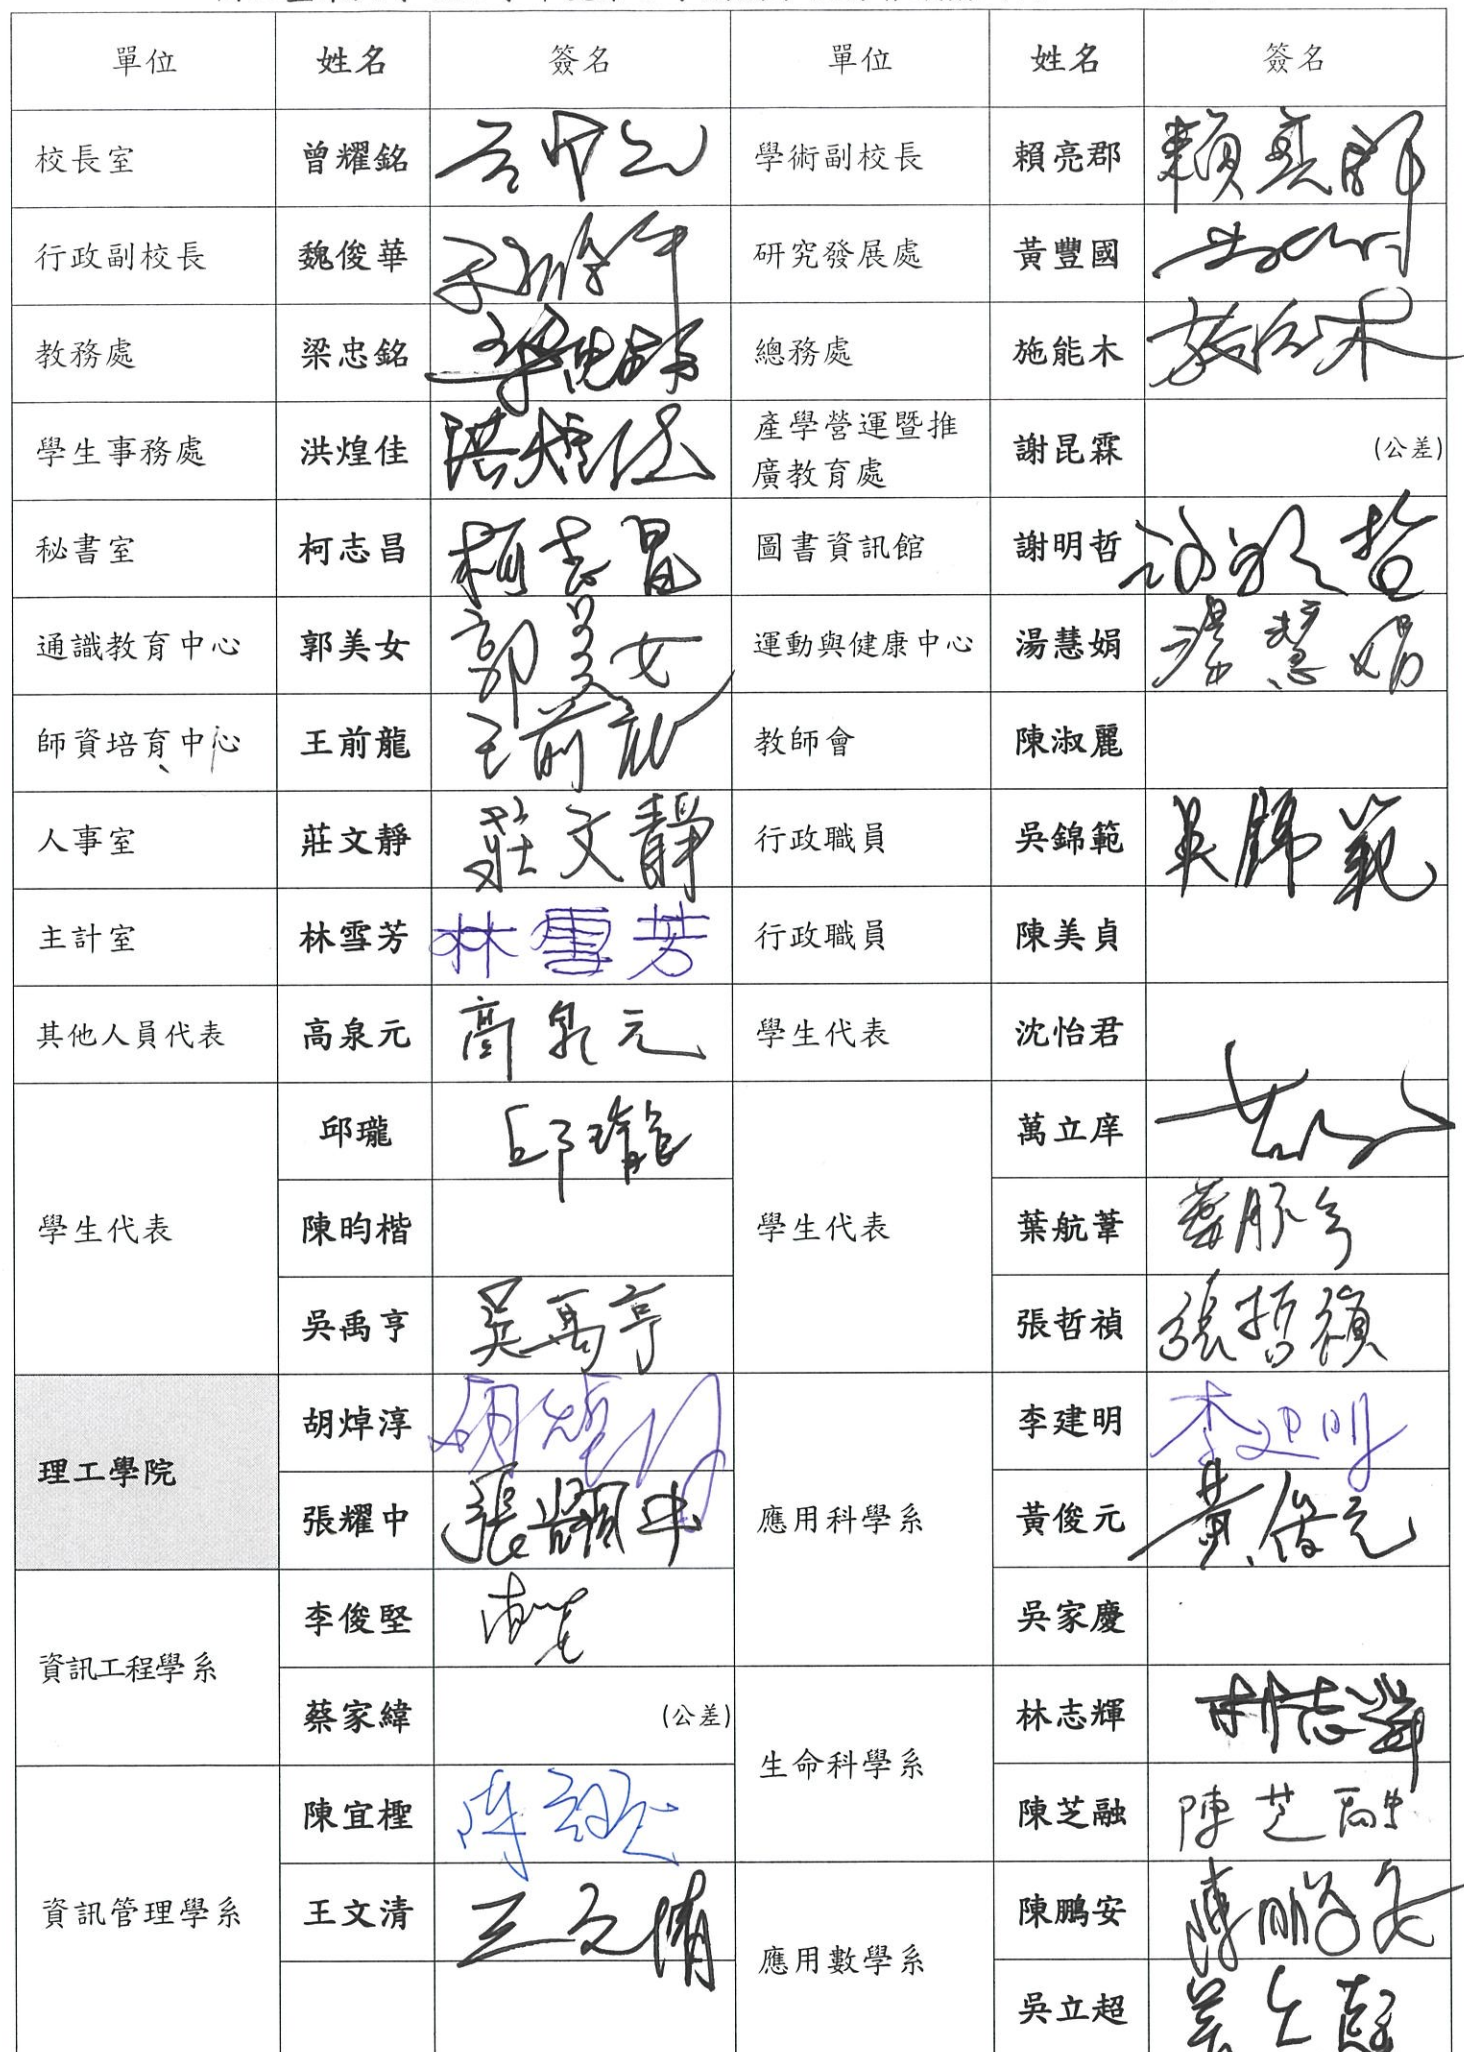 單位 姓名 簽名 單位 姓名 簽名
校長室 曾耀銘 學術副校長 賴亮郡 賴亮郡
行政副校長 魏俊華 研究發展處 黃豐國
教務處 梁忠銘 梁忠銘 總務處 施能木 施能木
學生事務處 洪煌佳 洪煌佳 產學營運暨推
廣教育處 謝昆霖 (公差)
秘書室 柯志昌 柯志昌 圖書資訊館 謝明哲 謝明哲
通識教育中心 郭美女 郭美女 運動與健康中心 湯慧娟 湯慧娟
師資培育中心 王前龍 王前龍 教師會 陳淑麗
人事室 莊文靜 莊文靜 行政職員 吳錦範 吳錦範
主計室 林雪芳 林雪芳 行政職員 陳美貞
其他人員代表 高泉元 高泉元 學生代表 沈怡君
學生代表 邱瓏 邱瓏 學生代表 萬立庠
陳昀楷 葉航葦
吳禹亨 吳禹亨 張哲禎 張哲禎
理工學院 胡焯淳 胡焯淳 應用科學系 李建明 李建明
張耀中 張耀中 黃俊元 黃俊元
資訊工程學系 李俊堅 吳家慶
蔡家緯 (公差) 生命科學系 林志輝 林志輝
資訊管理學系 陳宜檉 陳芝融 陳芝融
王文清 王文清 應用數學系 陳鵬安 陳鵬安
吳立超